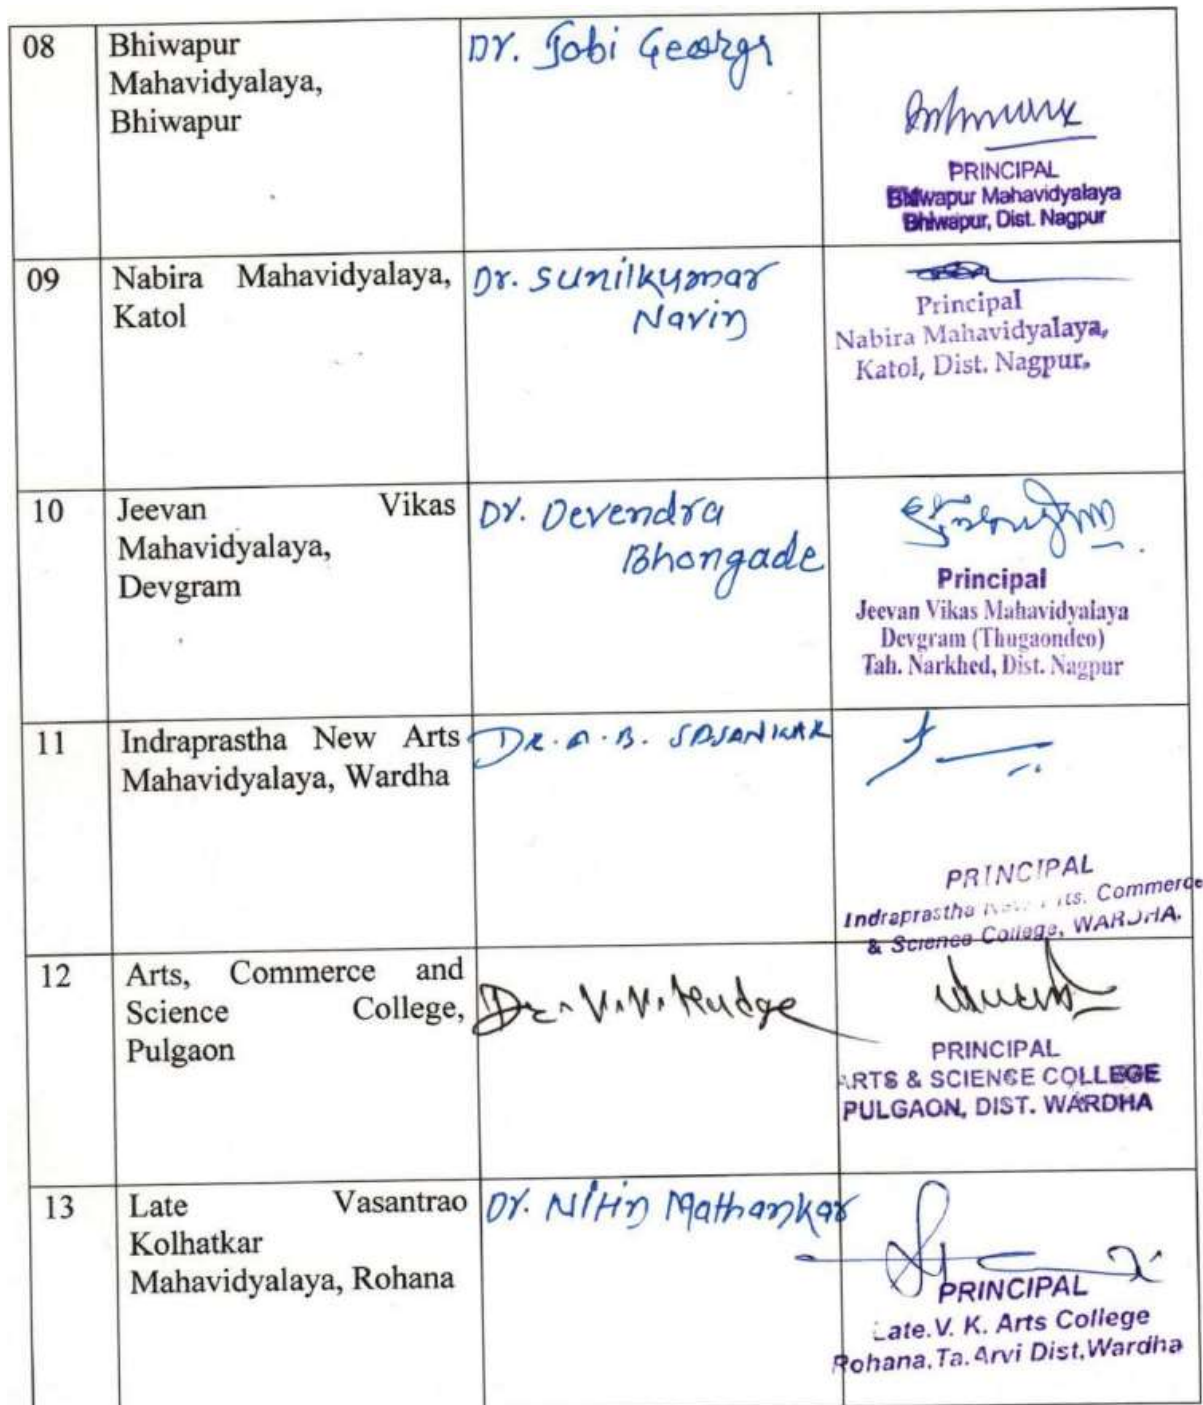 08
Bhiwapur
Mahavidyalaya,
Bhiwapur
Dr. Jobi George
PRINCIPAL
Bhiwapur Mahavidyalaya
Bhiwapur, Dist. Nagpur
09
Nabira Mahavidyalaya,
Katol
Dr. Sunilkumar
Navin
Principal
Nabira Mahavidyalaya,
Katol, Dist. Nagpur.
10
Jeevan Vikas
Mahavidyalaya,
Devgram
Dr. Devendra
Bhongade
Principal
Jeevan Vikas Mahavidyalaya
Devgram (Thugaondeo)
Tah. Narkhed, Dist. Nagpur
11
Indraprastha New Arts
Mahavidyalaya, Wardha
Dr. A. B. SASANKAR
PRINCIPAL
Indraprastha New Arts, Commerce
& Science College, WARDHA.
12
Arts, Commerce and
Science College,
Pulgaon
Dr. V.V.
PRINCIPAL
ARTS & SCIENCE COLLEGE
PULGAON, DIST. WARDHA
13
Late Vasantrao
Kolhatkar
Mahavidyalaya, Rohana
Dr. Nitin Mathankar
PRINCIPAL
Late.V. K. Arts College
Rohana.Ta.Arvi Dist.Wardha